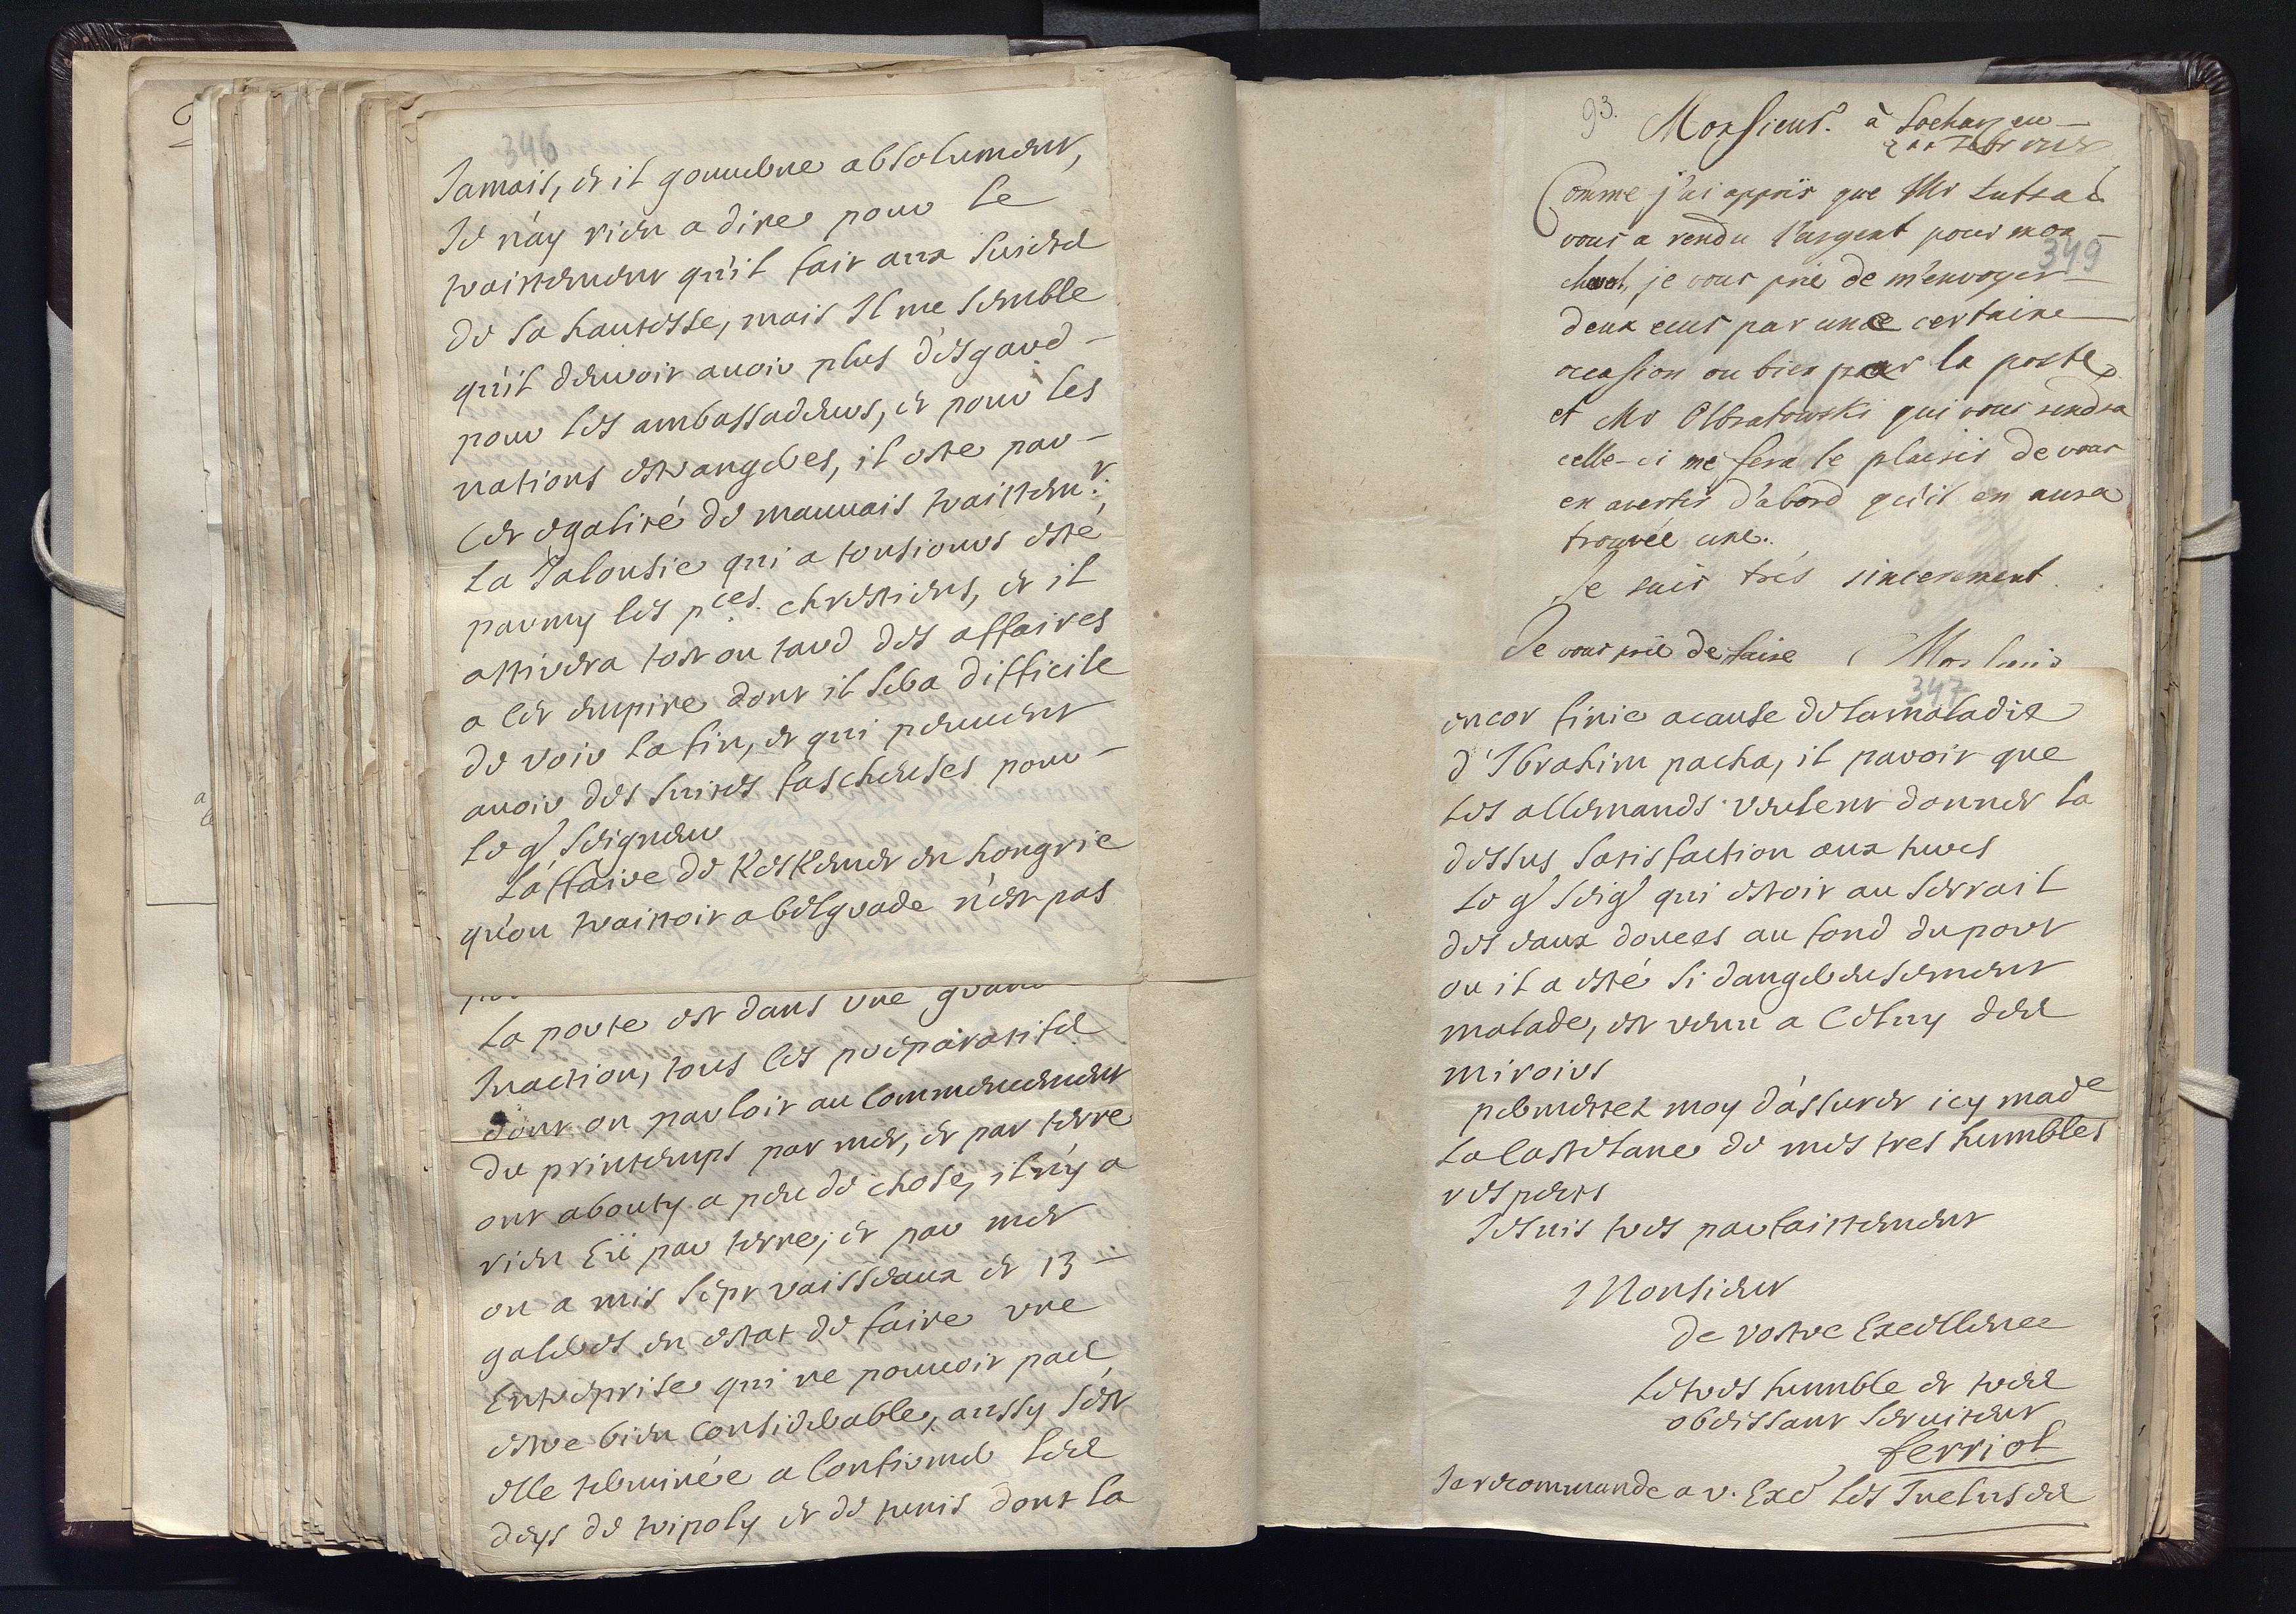 346
Jamais, et il gouuerne absolument,
Je n'ay rien a dire pour le
traittement qu'il fait aux suiets
de sa hautesse, mais Il me semble
qu'il deuroit auoir plus d'esgard
pour les ambassadeurs, et pour les
nations estrangeres, il oste par
cet egalité de mauuais traittem.t
la Jalousie qui a tousiours esté
parmy les p.ces chrestiens, et il
attirera tost ou tard des affaires
a cet empire dont il sera difficile
de voir la fin, et qui peuuent
auoir des suites fascheuses pour
le g.d seigneur
L'affaire de Keskemet en hongrie
qu'on traittoit a belgrade n'est pas
La porte est dans vne grande
Inaction, tous les preparatifs
dont on parloit au commencement
du printemps par mer, et par terre
ont abouty a peu de chose, il n'y a
rien Eü par terre, et par mer
on a mis sept vaisseaux et 13
galeres en estat de faire vne
Entreprise qui ne pouuoit pas
estre bien considerable, aussy s'est
elle terminée a confirmer les
deys de tripoly et de tunis dont la
93.
Monsieur. à
Comme j'ai appris que Mr
vous a rendu l'argent pour mon
349
cheval, je vous prie de m'envoyer
deux ecus par une certaine
occasion ou bien par la poste,
et Mr Olbratowski qui vous rendra
celle-ci me fera le plaisir de vous
en avertir d'abord qu'il en aura
trouvée une.
Je suis trés sincerement
Je vous prie de faire
347
encor finie a cause de la maladie
d'Ibrahim pacha, il paroit que
les allemands veulent donner la
dessus satisfaction aux turcs
Le g.d seig.r qui estoit au serrail
des eaux douces au fond du port
ou il a esté si dangereusement
malade, est venu a celuy des
miroirs
permettez moy d'assurer icy made
la Castelane de mes tres humbles
respects
Je suis tres parfaittement
Monsieur
de vostre Excellence
Le tres humble et tres
obeissant seruiteur
ferriol
Je recommande a v. Exc.e les Incluses